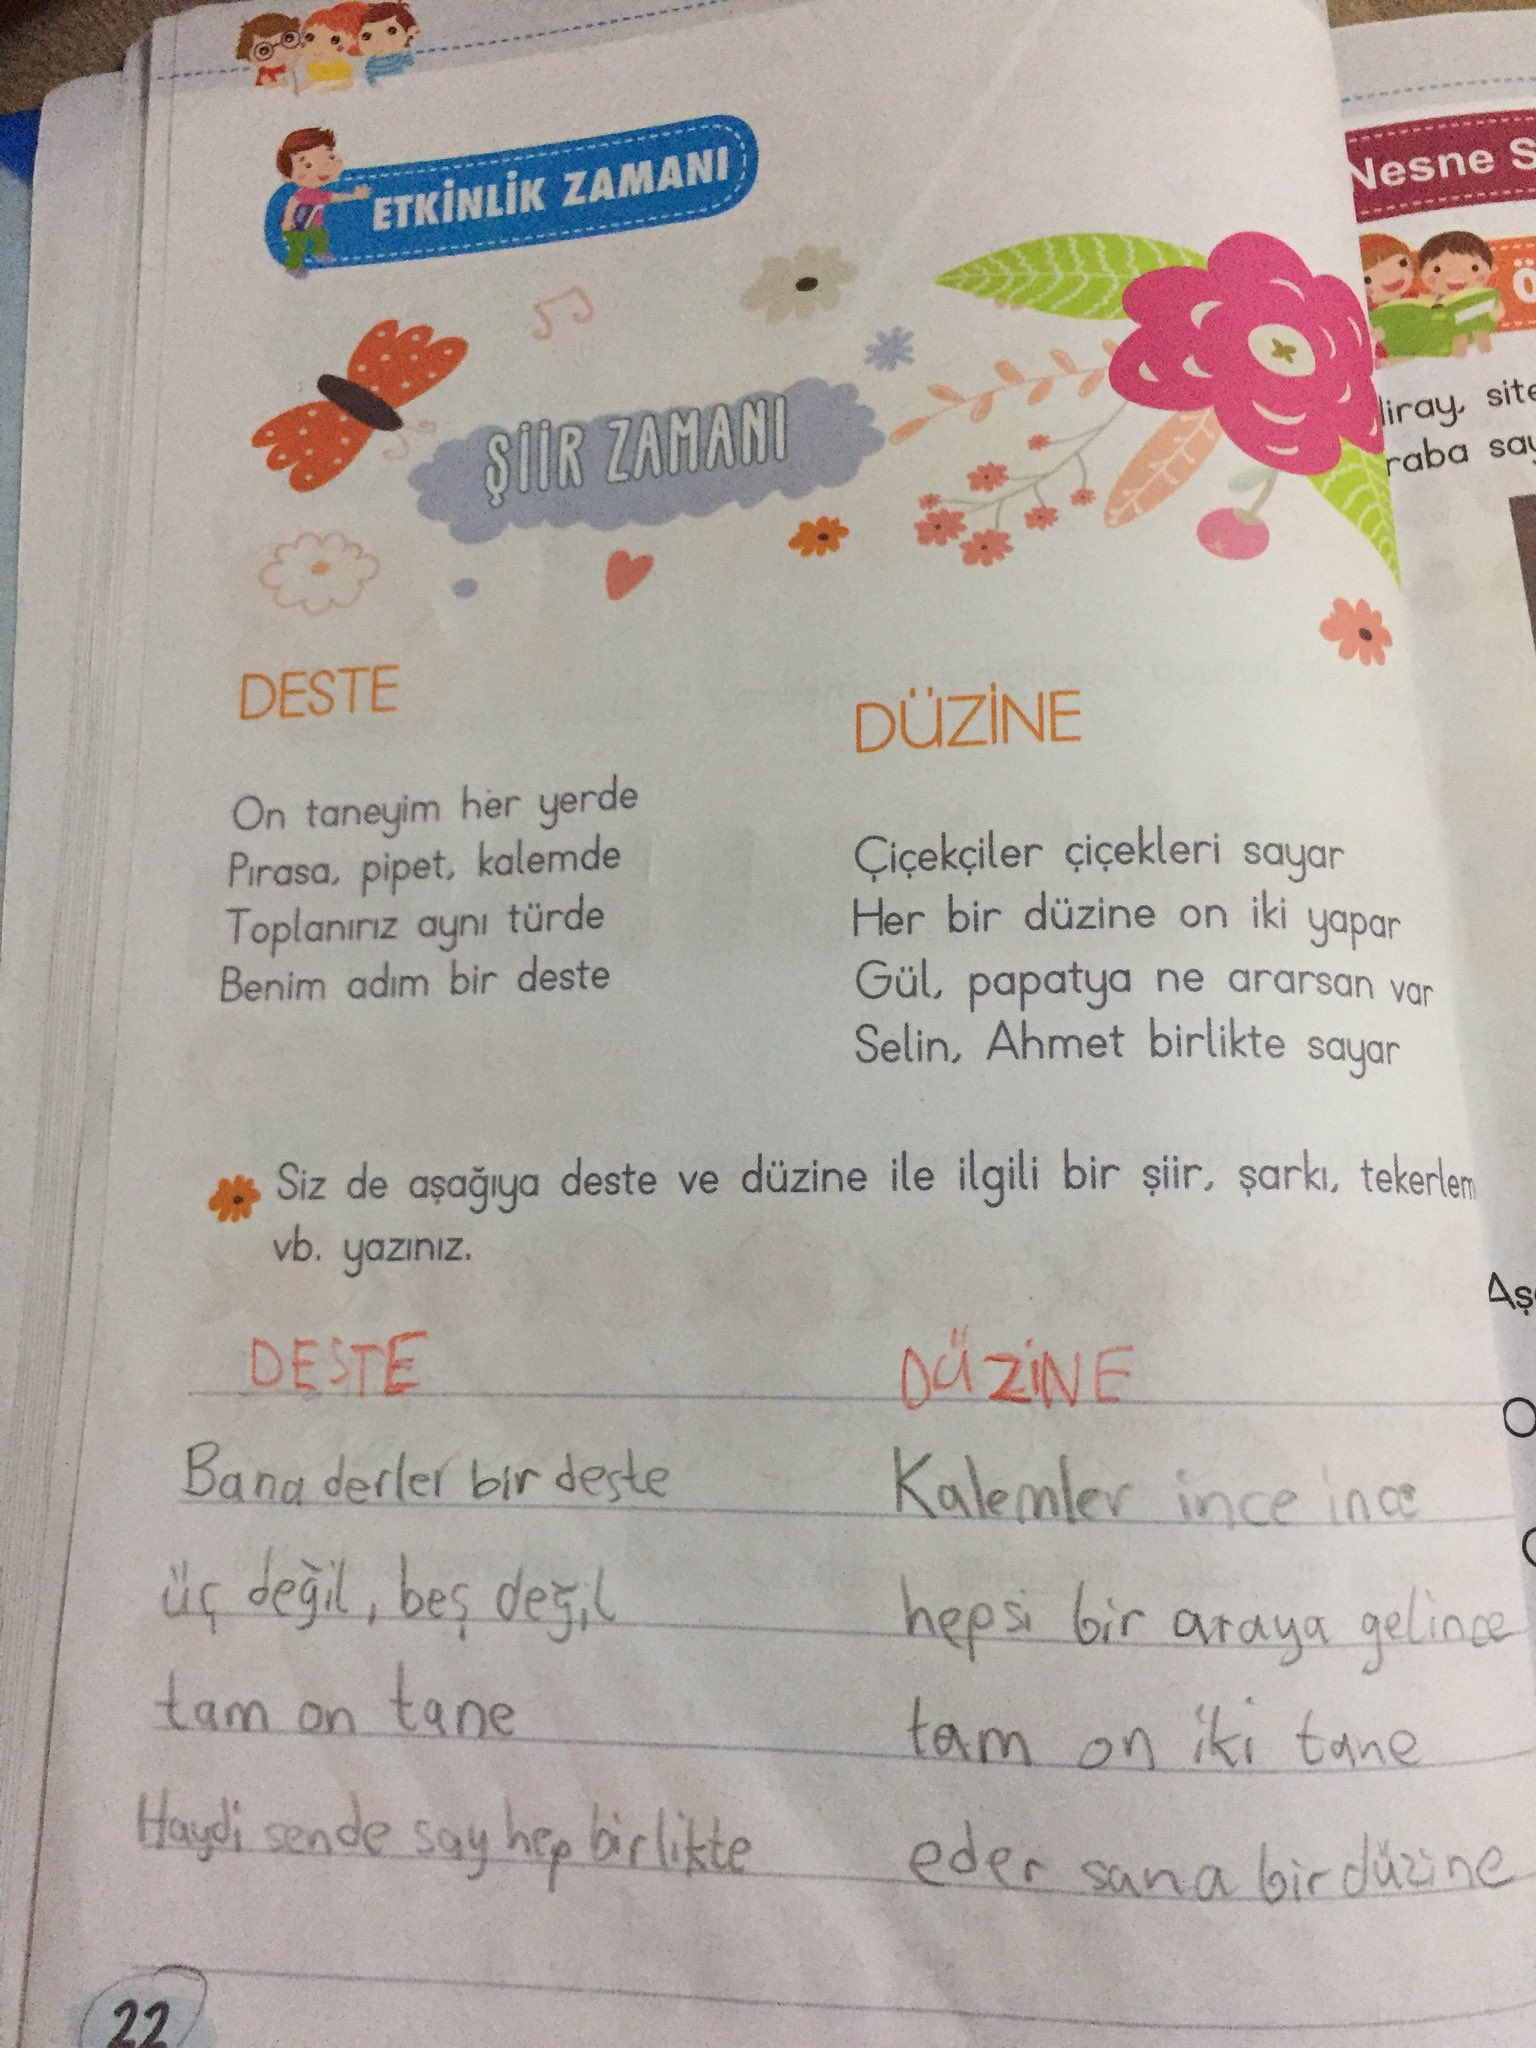 ETKİNLİK ZAMANI
ŞİİR ZAMANI
DESTE
On taneyim her yerde
Pırasa, pipet, kalemde
Toplanırız aynı türde
Benim adım bir deste
DÜZİNE
Çiçekçiler çiçekleri sayar
Her bir düzine on iki yapar
Gül, papatya ne ararsan var
Selin, Ahmet birlikte sayar
Siz de aşağıya deste ve düzine ile ilgili bir şiir, şarkı, tekerlem
vb. yazınız.
DESTE
Bana derler bir deste
üç değil, beş değil
tam on tane
Haydi sende say hep birlikte
DÜZİNE
Kalemler ince ince
hepsi bir araya gelince
tam on iki tane
eder sana bir düzine
22
Nesne S
Ö
liray, site
raba say
Aş